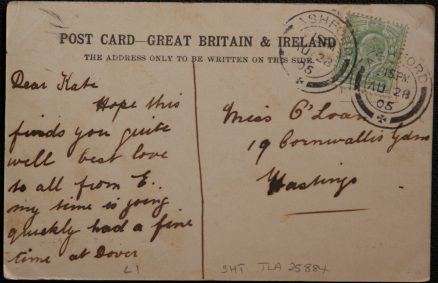 POST CARD—GREAT BRITAIN & IRELAND
THE ADDRESS ONLY TO BE WRITTEN ON THIS SIDE.
ASHFORD
AU 28
05
ASHFORD
15 PM
AU 28
05
Dear Kate
Hope this
finds you quite
well best love
to all from E.
my time is going
quickly had a fine
time at Dover
Miss O'Loan
19 Cornwallis Gdns
Hastings
L1
3HT TLA 25884